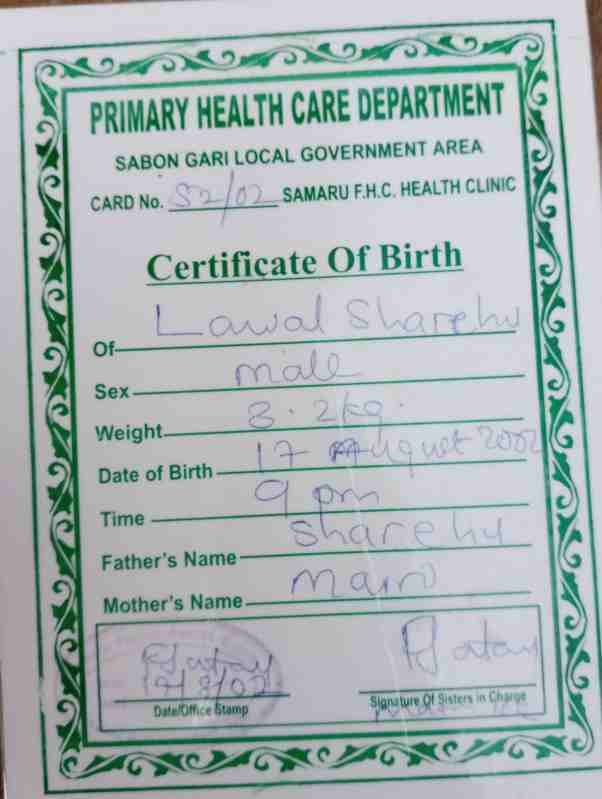 PRIMARY HEALTH CARE DEPARTMENT
SABON GARI LOCAL GOVERNMENT AREA
CARD No. 52/02 SAMARU F.H.C. HEALTH CLINIC
Certificate Of Birth
Of Lawal Sharehu
Sex male
Weight 3.2kg.
Date of Birth 17 August 2002
Time 9 pm
Father's Name Sharehu
Mother's Name Mairo
17/8/02
Date/Office Stamp
Signature Of Sisters in Charge